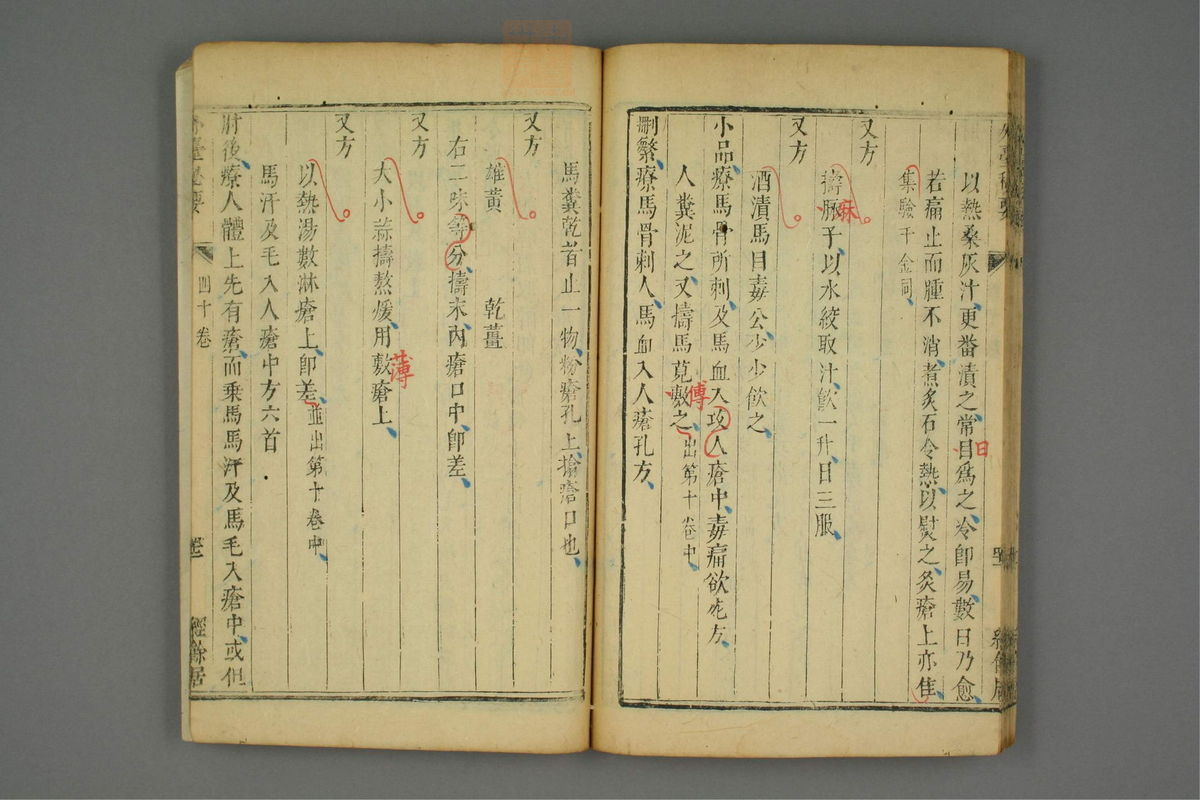 以熱桑灰汁更番漬之常目爲之冷即易數日乃愈
日
若痛止而腫不消煮炙石令熱以熨之灸瘡上亦佳
集驗千金同
又方
擣豚子以水絞取汁飲一升日三服
麻
又方
酒漬馬目毒公少少飲之
小品療馬骨所刺及馬血入攻人瘡中毒痛欲死方
人糞泥之又擣馬莧敷之出第十卷中
傅
刪繁療馬骨刺人馬血入人瘡孔方
馬糞乾者止一物粉瘡孔上揄瘡口也
又方
雄黃 乾薑
右二味等分擣末內瘡口中即差
又方
大小蒜擣熬煖用敷瘡上
薄
又方
以熱湯數淋瘡上即差並出第十卷中
馬汗及毛入人瘡中方六首
肘後療人體上先有瘡而乗馬馬汗及馬毛入瘡中或但
外臺秘要 四十卷 經餘居